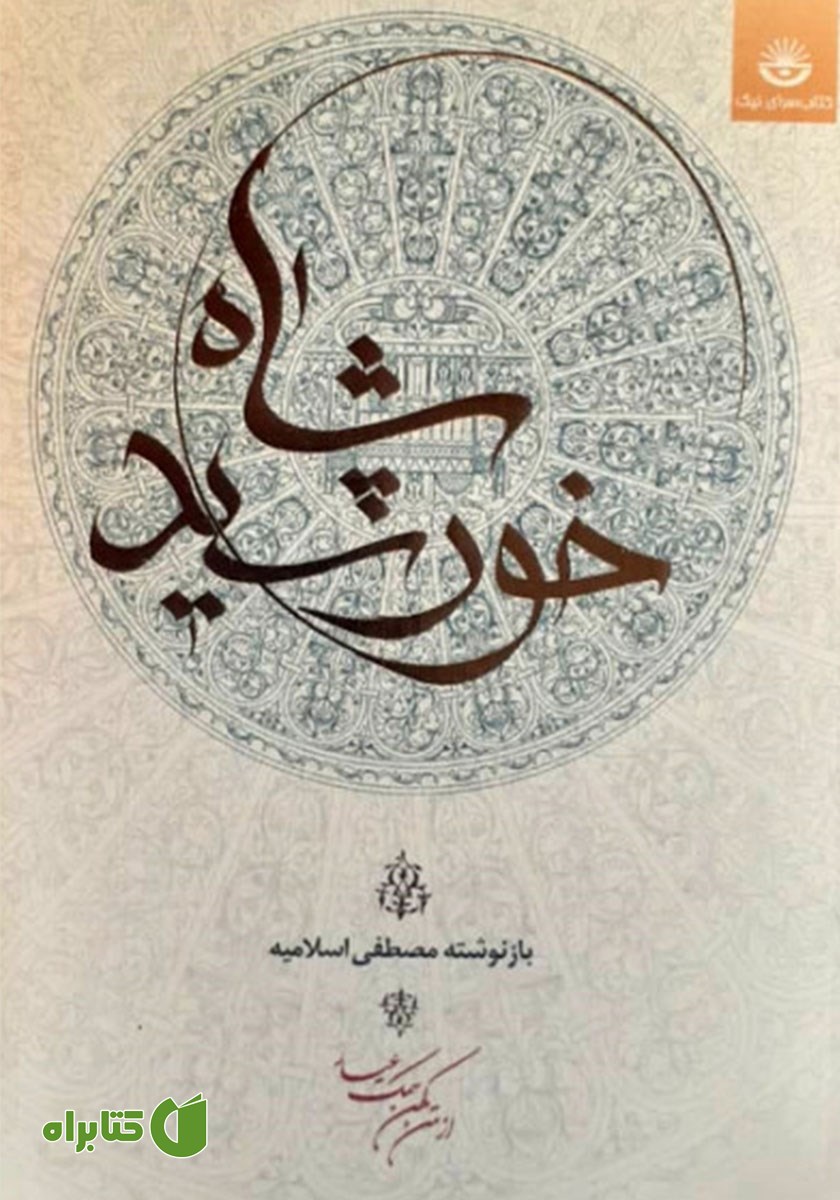 کتاب‌سرای نیک
خورشید شاه
بازنوشته مصطفی اسلامیه
از متن کهن سمک عیار
کتابراه